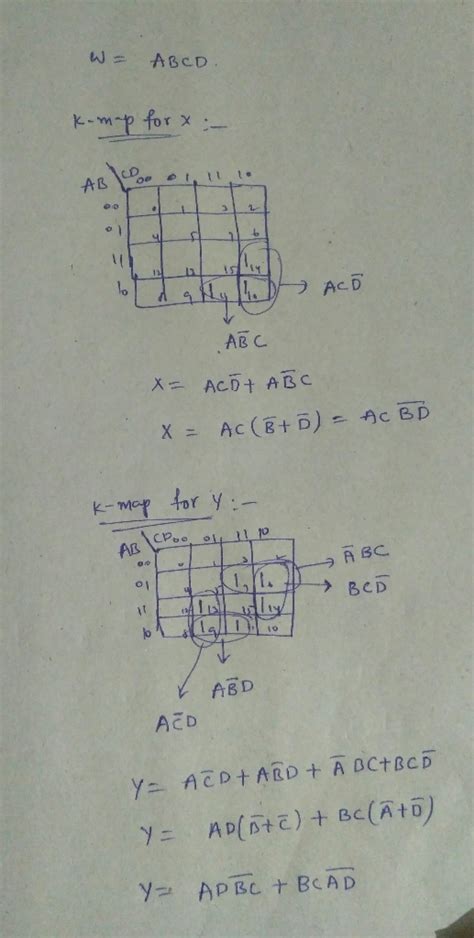 W = ABCD.
K-map for X :-
AB \ CD 00 01 11 10
00 0 1 3 2
01 4 5 7 6
11 12 13 15 1 14
10 8 9 1 11 1 10
→ ACD̅
AB̅C
X = ACD̅ + AB̅C
X = AC(B̅+D̅) = AC B̅D̅
K-map for Y :-
AB \ CD 00 01 11 10
00 0 1 3 2
01 4 5 1 7 1 6
11 12 1 13 15 1 14
10 8 1 9 1 11 10
→ A̅BC
→ BCD̅
AB̅D
AC̅D
Y = AC̅D + AB̅D + A̅BC + BCD̅
Y = AD(B̅+C̅) + BC(A̅+D̅)
Y = AD B̅C̅ + BC A̅D̅